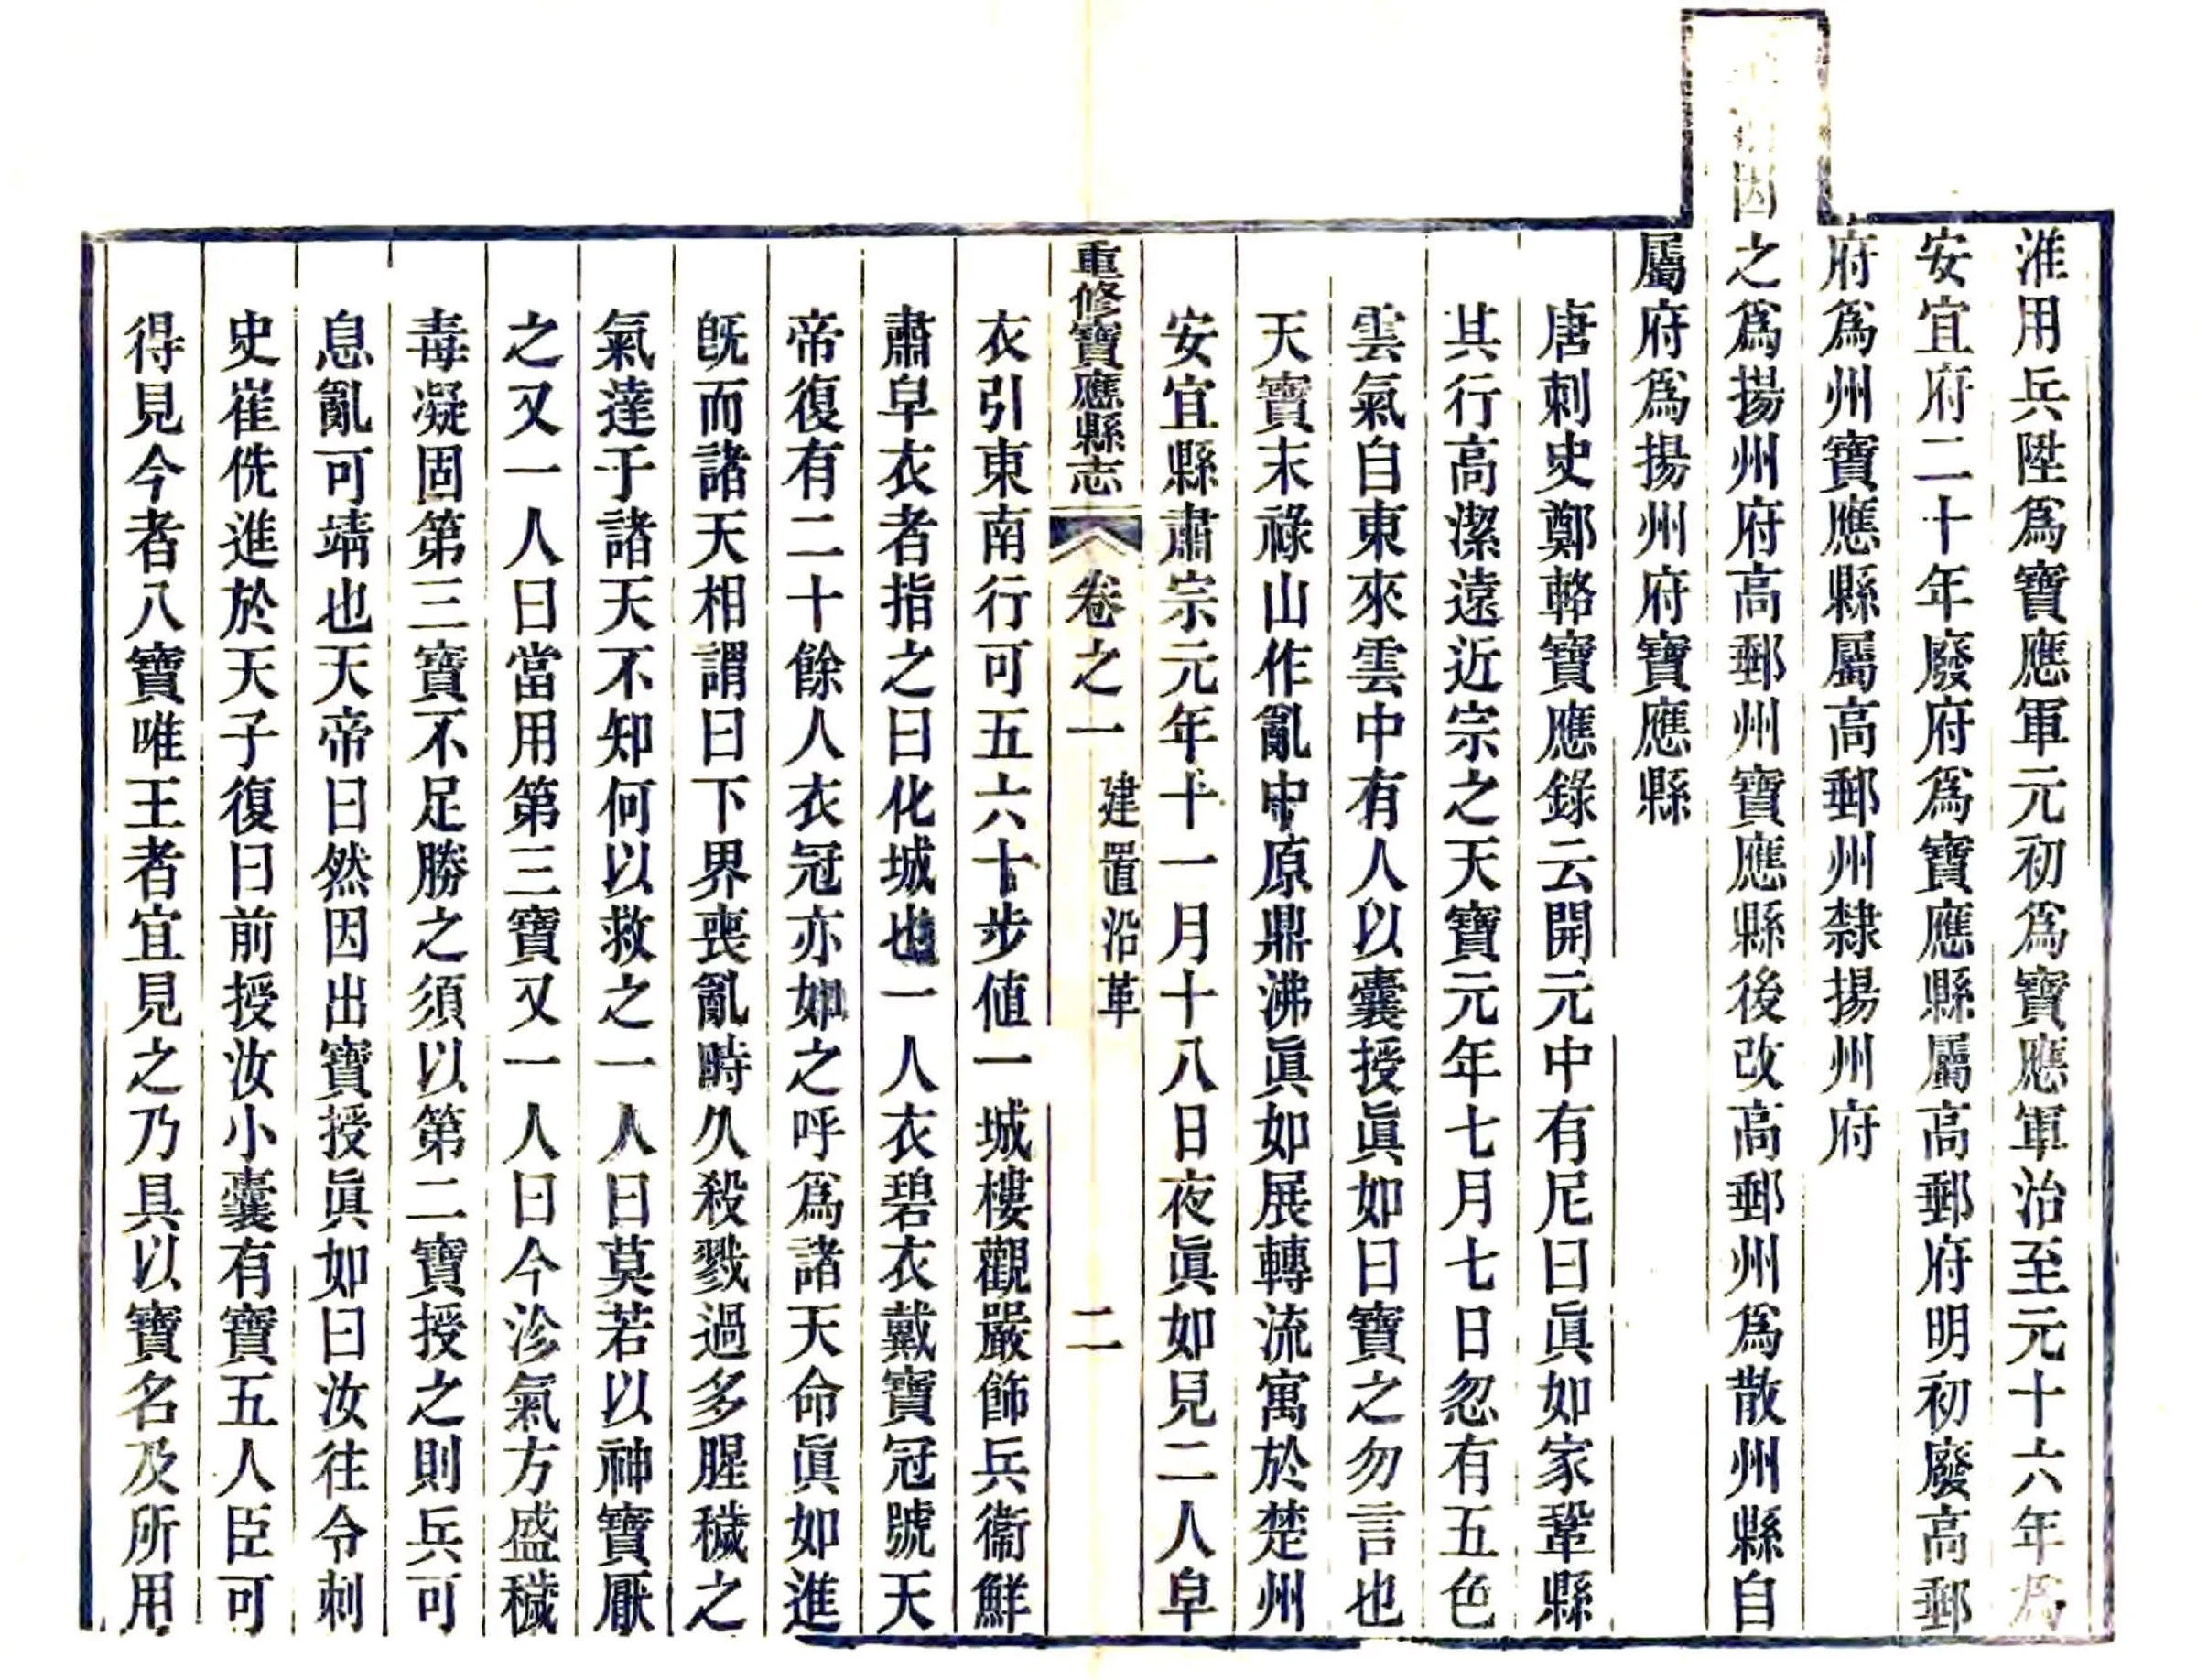 淮用兵陞爲寶應軍元初爲寶應軍治至元十六年爲
安宜府二十年廢府爲寶應縣屬高郵府明初廢高郵
府爲州寶應縣屬高郵州隸揚州府
因之爲揚州府高郵州寶應縣後改高郵州爲散州縣自
屬府爲揚州府寶應縣
唐刺史鄭輅寶應錄云開元中有尼曰眞如家鞏縣
其行高潔遠近宗之天寶元年七月七日忽有五色
雲氣自東來雲中有人以囊授眞如曰寶之勿言也
天寶末祿山作亂中原鼎沸眞如展轉流寓於楚州
安宜縣肅宗元年十一月十八日夜眞如見二人皁
重修寶應縣志 卷之一 建置沿革 二
衣引東南行可五六十步値一城樓觀嚴飾兵衞鮮
肅皁衣者指之曰化城也一人衣碧衣戴寶冠號天
帝復有二十餘人衣冠亦如之呼爲諸天命眞如進
旣而諸天相謂曰下界喪亂時久殺戮過多腥穢之
氣達于諸天不知何以救之一人曰莫若以神寶厭
之又一人曰當用第三寶又一人曰今沴氣方盛穢
毒凝固第三寶不足勝之須以第二寶授之則兵可
息亂可靖也天帝曰然因出寶授眞如曰汝往令刺
史崔侁進於天子復曰前授汝小囊有寶五人臣可
得見今者八寶唯王者宜見之乃具以寶名及所用